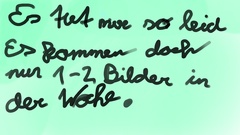 Es tut mir so leid
Es kommen doch
nur 1-2 Bilder in
der Woche.